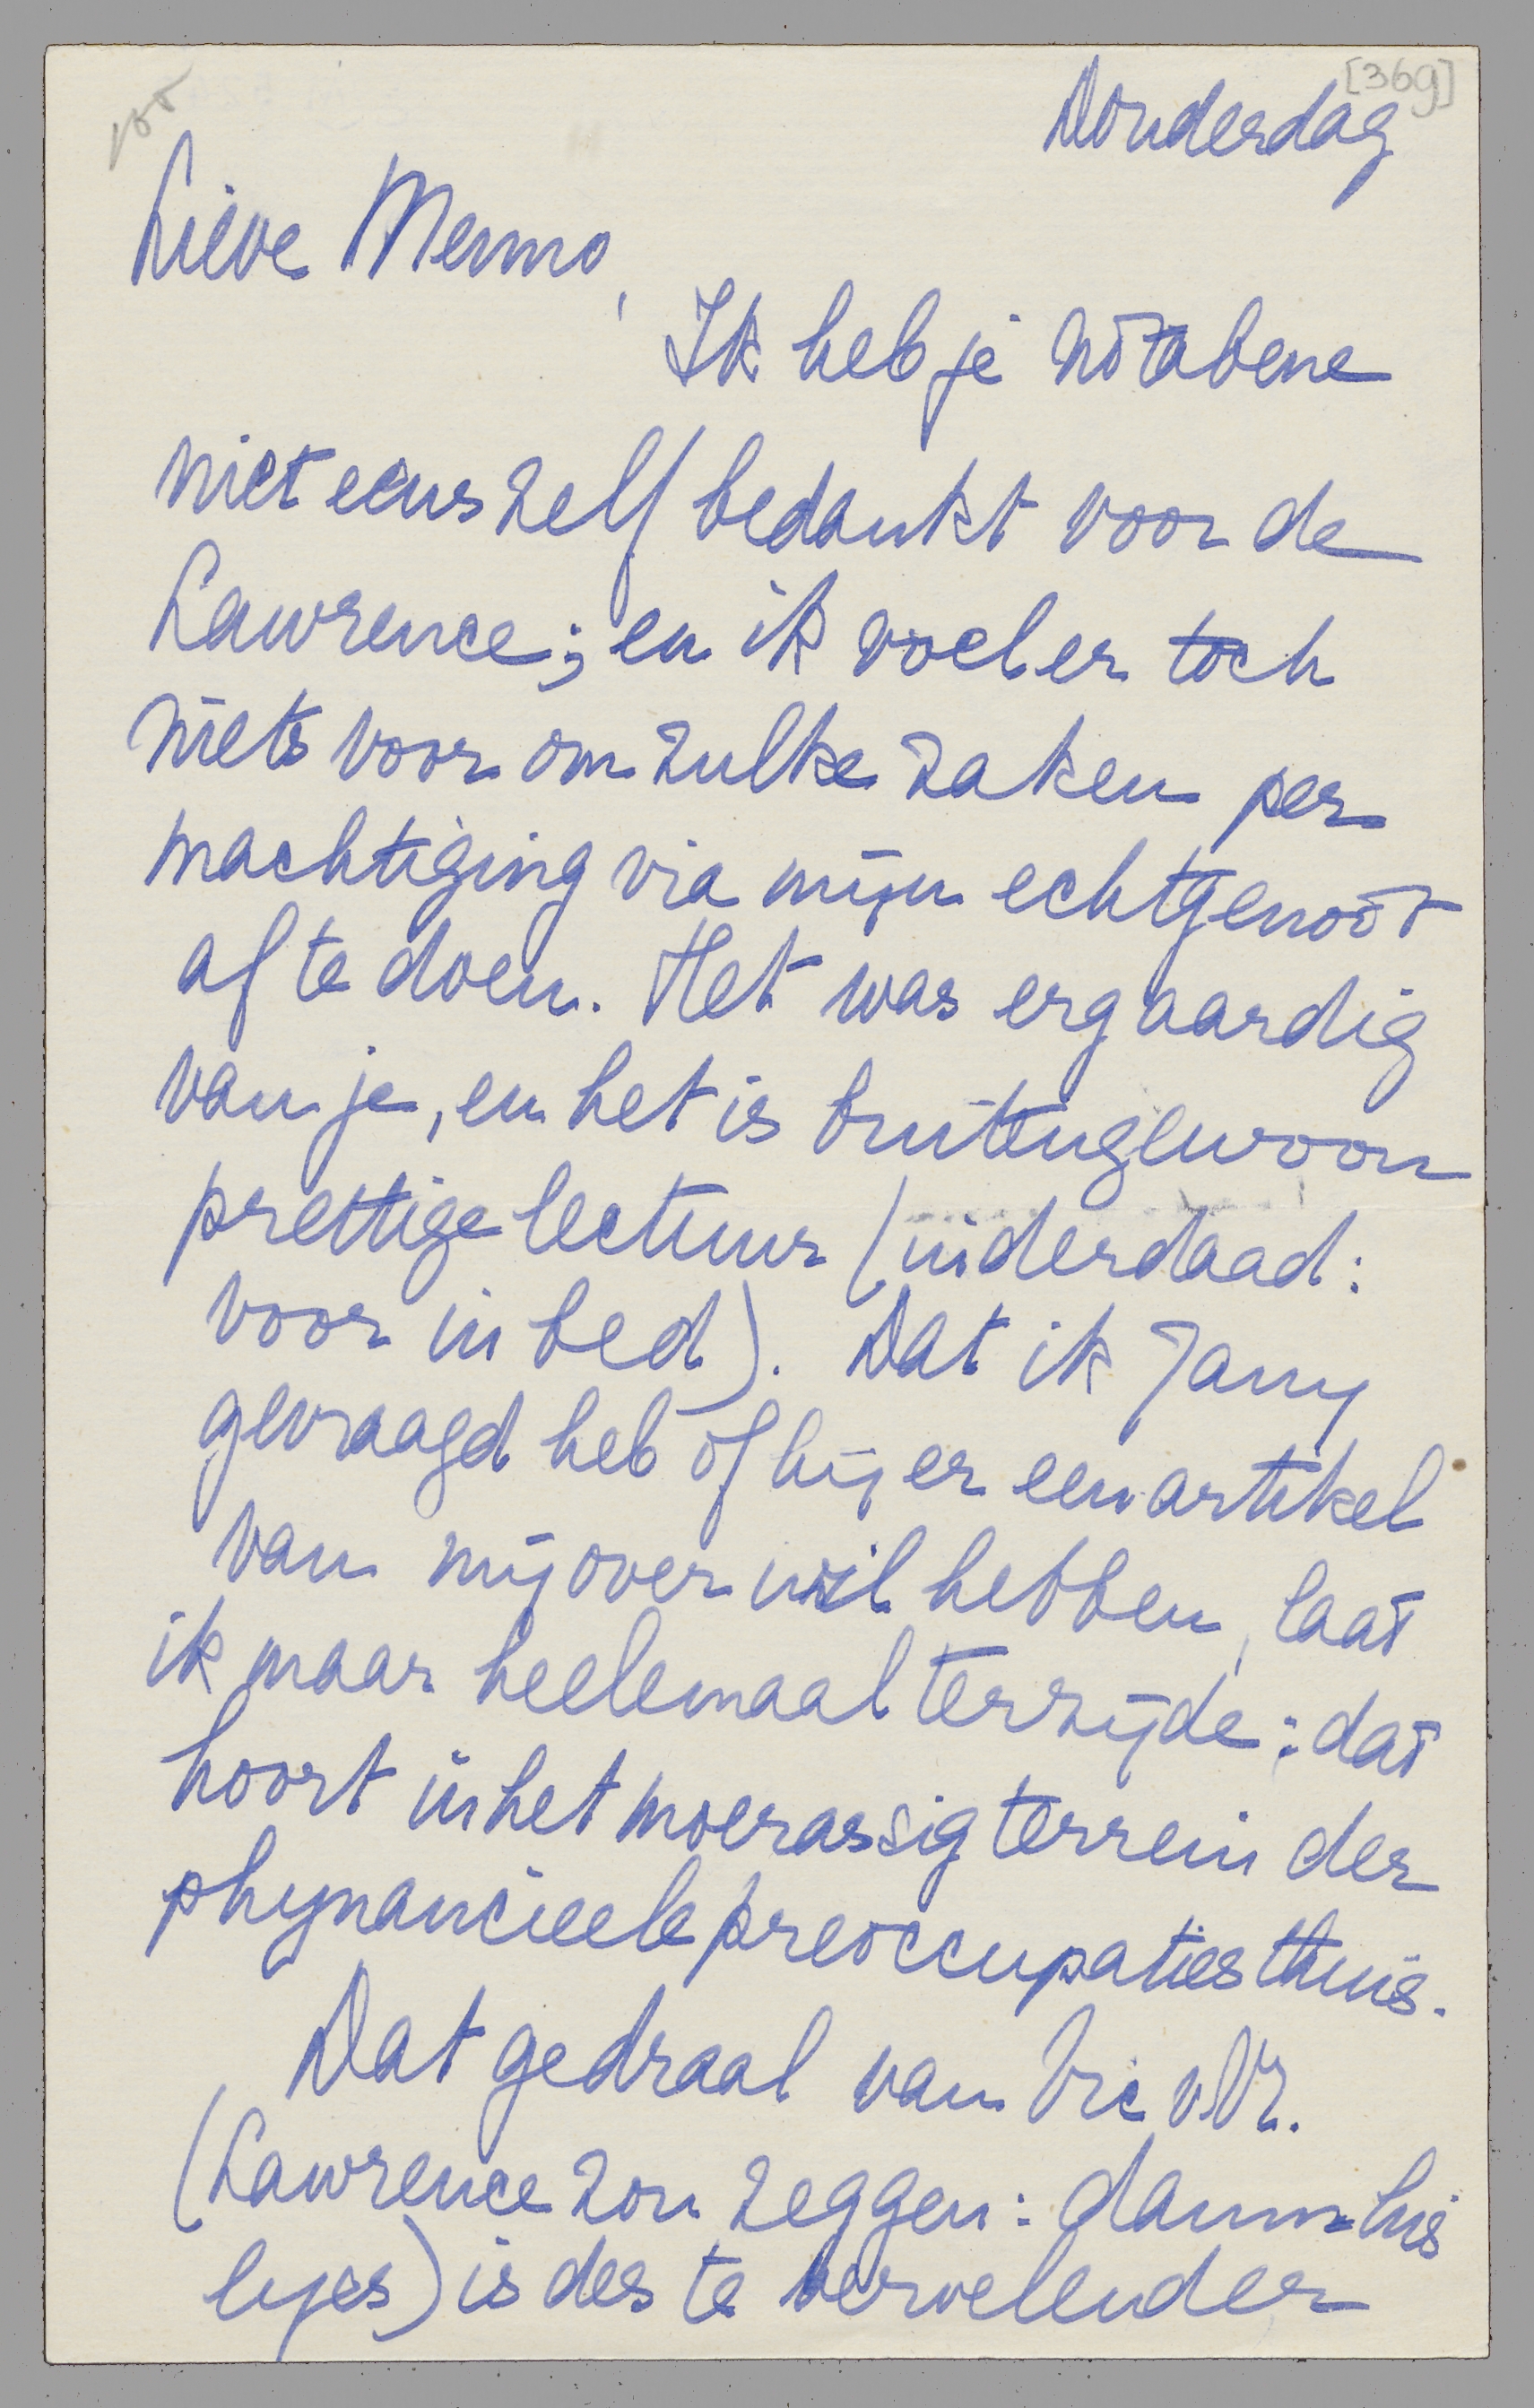 [369]
Donderdag
Lieve Menno,
Ik heb je nota bene
niet eens zelf bedankt voor de
Lawrence; en ik voel er toch
niets voor om zulke zaken per
machtiging via mijn echtgenoot
af te doen. Het was erg aardig
van je, en het is buitengewoon
prettige lectuur (inderdaad:
voor in bed). Dat ik Jany
gevraagd heb of hij er een artikel
van mij over wil hebben, laat
ik maar heelemaal terzijde: dat
hoort in het moerassig terrein der
phynancieele preoccupaties thuis.
Dat gedraal van Vic v.Vr.
(Lawrence zou zeggen: damn his
eyes) is des te vervelender